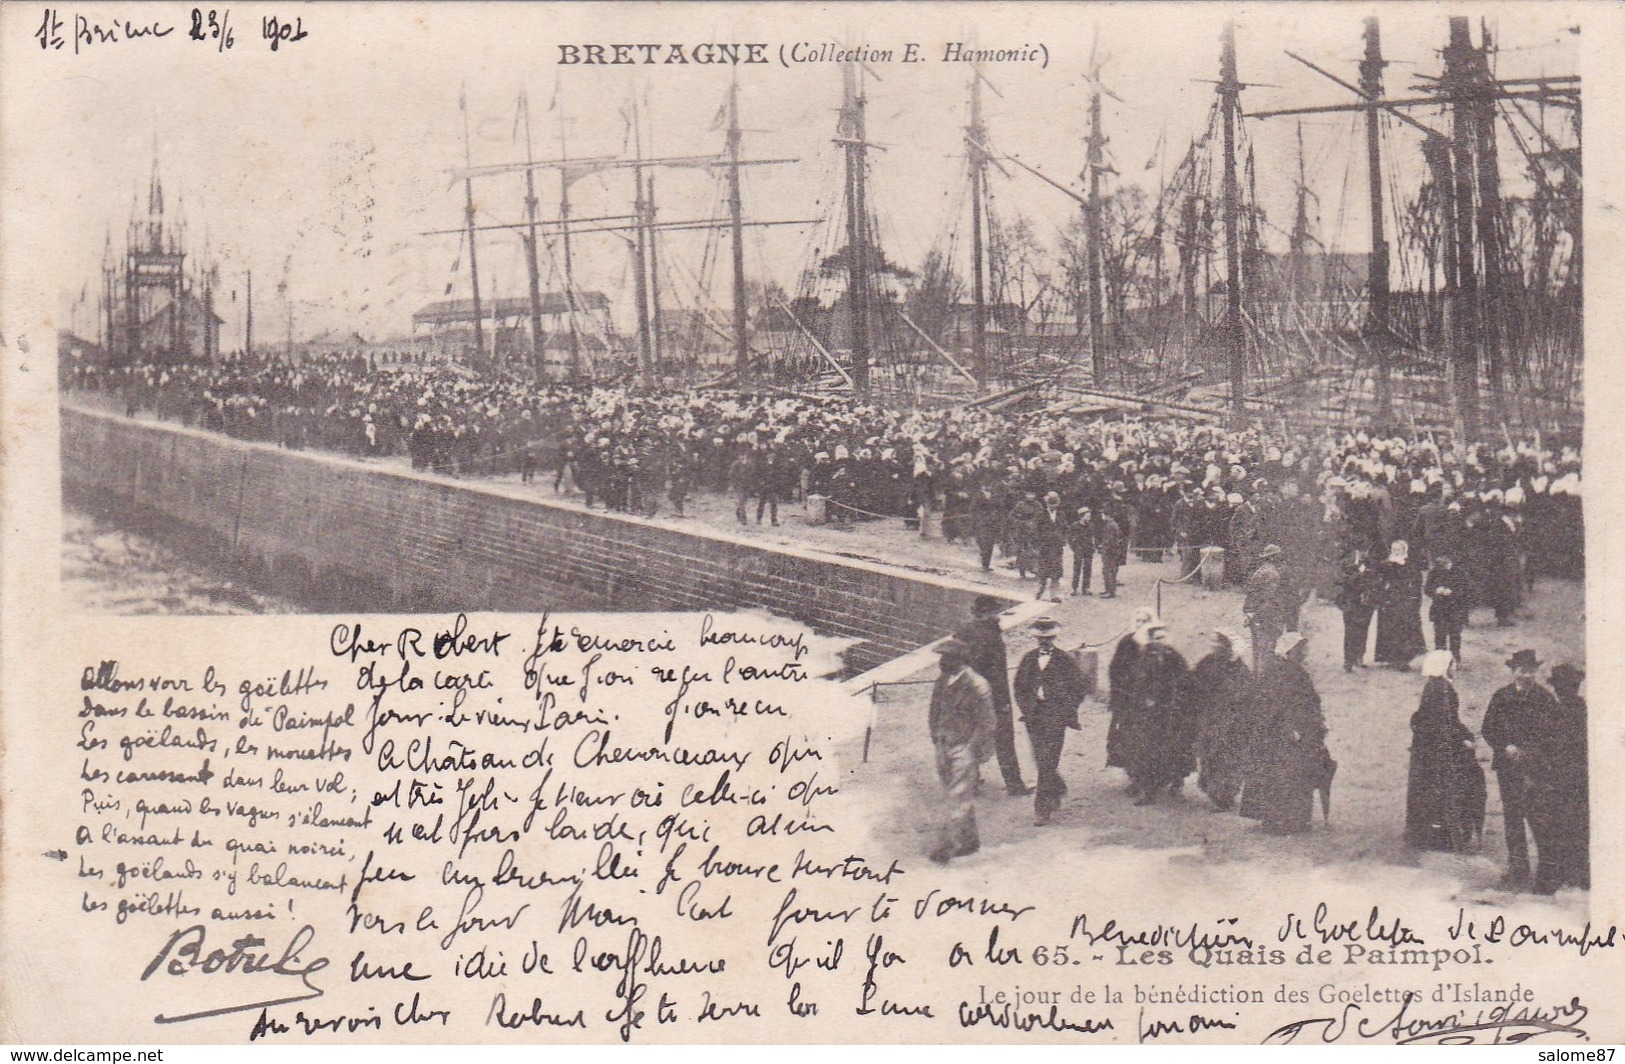 St Brieuc 23/6 1901
BRETAGNE (Collection E. Hamonic)
Allons voir les goëlettes
Dans le bassin de Paimpol
Les goëlands, les mouettes
Les caressent dans leur vol;
Puis, quand les vagues s'élancent
A l'assaut du quai noirci,
Les goëlands s'y balancent
Les goëlettes aussi!
Botrel
Cher Robert Je te remercie beaucoup
de la carte que j'ai reçu l'autre
jour: Le vieux Paris. J'ai reçu
Château de Chenonceaux qui
est très joli. Je t'envoie celle-ci qui
n'est pas laide, qui est un
peu embrouillée je trouve surtout
vers le fond Mais c'est pour te donner
une idée de l'affluence qu'il y a à la Bénédiction de Goelettes de Paimpol.
65. - Les Quais de Paimpol.
Le jour de la bénédiction des Goëlettes d'Islande
Au revoir cher Robert Je te serre la main cordialement ton ami
salome87